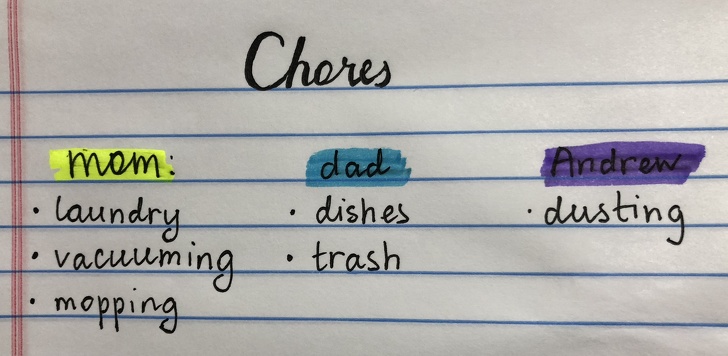 Chores
mom:
· laundry
· vacuuming
· mopping
dad
· dishes
· trash
Andrew
· dusting